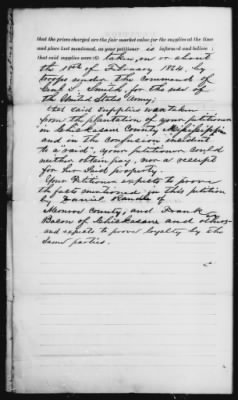 that the prices charged are the fair market value for the supplies at the time
and place last mentioned, as your petitioner is informed and believes
that said supplies were taken, on or about
the 18th of February 1864, by
troops under the command of
Genl S. Smith, for the use of
the United States Army,
that said supplies was taken
from the plantation of your petitioner
in Chickasaw County Mississippi
and in the confusion incident
to a "raid", your petitioner could
neither obtain pay, nor a receipt
for her said property.
Your Petitioner expects to prove
the facts mentioned in this petition
by Daniel of
Monroe County, and Frank
Bacon of Chickasaw and others
and expects to prove loyalty by the
same parties.